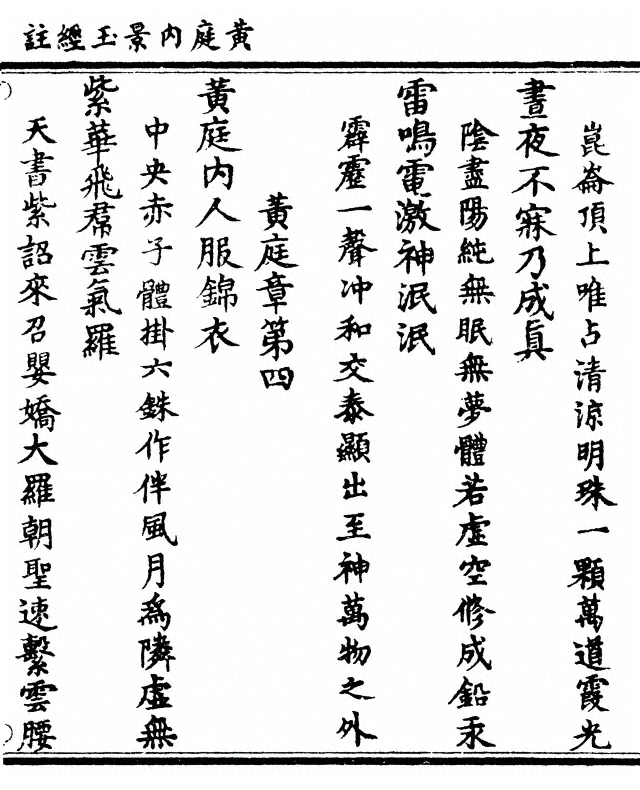 黃庭內景玉經註
崑崙頂上唯占清涼明珠一顆萬道霞光
晝夜不寐乃成眞
陰盡陽純無眠無夢體若虛空修成鉛汞
雷鳴電激神泯泯
霹靂一聲冲和交泰顯出至神萬物之外
黃庭章第四
黃庭內人服錦衣
中央赤子體掛六銖作伴風月爲隣虛無
紫華飛帬雲氣羅
天書紫詔來召嬰嬌大羅朝聖速繫雲腰